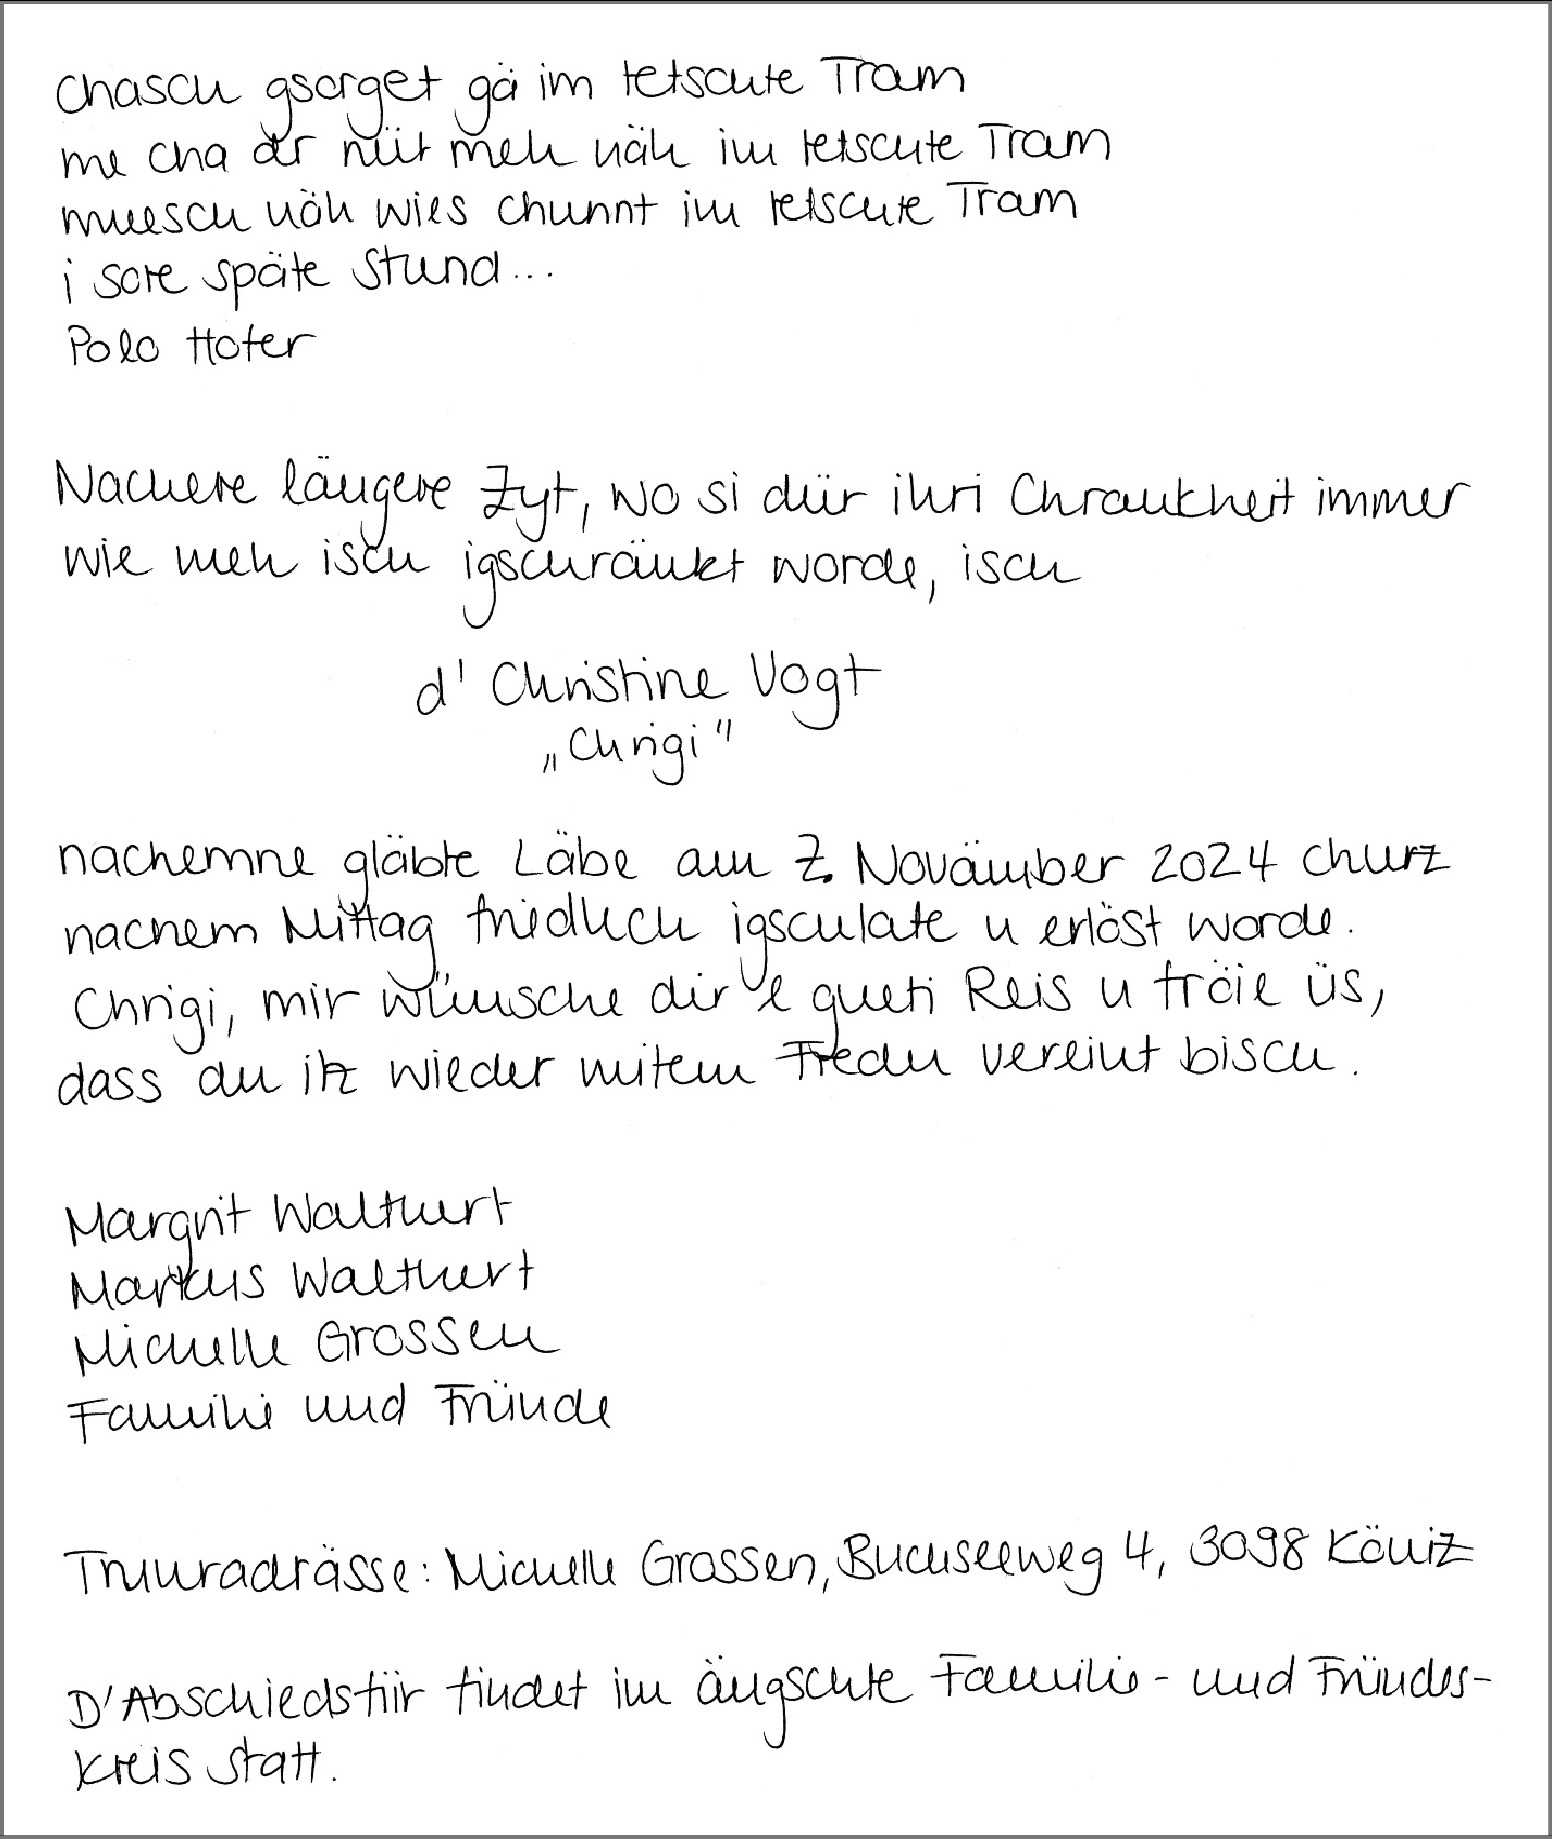 chasch gsorget gä im letschte Tram
me cha dr nüt meh näh im letschte Tram
muesch näh wies chunnt im letschte Tram
i sore späte Stund...
Polo Hofer
Nachere längere Zyt, wo si dür ihri Chrankheit immer
wie meh isch igschränkt worde, isch
d' Christine Vogt
„Chrigi"
nachemne gläbte Läbe am 7. Novämber 2024 churz
nachem Mittag friedlech igschlafe u erlöst worde.
Chrigi, mir wünsche dir e gueti Reis u fröie üs,
dass du itz wieder mitem Fredu vereint bisch.
Margrit Walthert
Markus Walthert
Michelle Grossen
Familie und Fründe
Truuradrässe: Michelle Grossen, Buchseeweg 4, 3098 Köniz
D'Abschiedsfiir findet im ängschte Familie- und Fründes-
kreis statt.